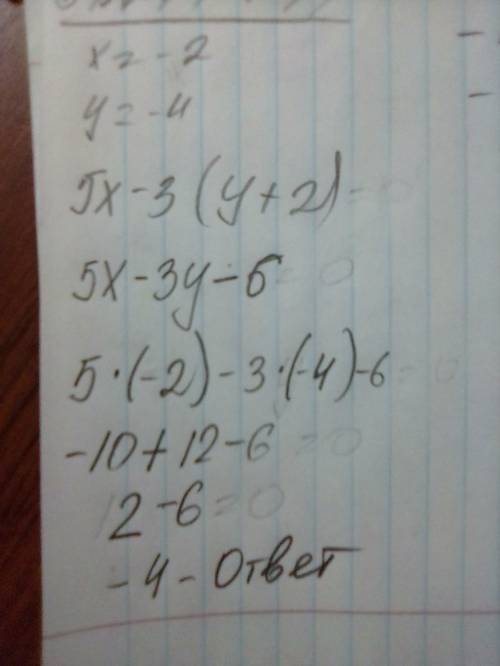 x = -2
y = -4
5x - 3(y + 2) = 0
5x - 3y - 6 = 0
5·(-2) - 3·(-4) - 6 = 0
-10 + 12 - 6 = 0
2 - 6 = 0
-4 - Ответ